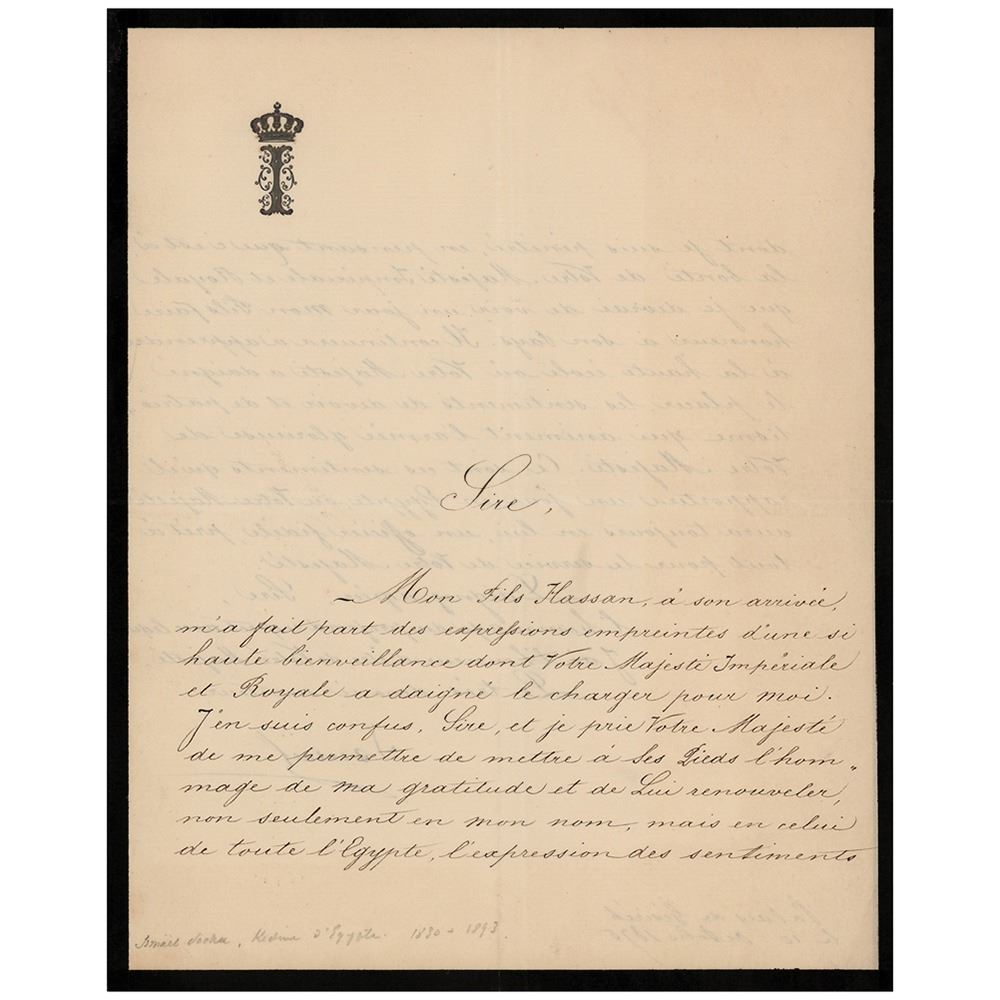 Sire,
— Mon Fils Hassan, à son arrivée,
m'a fait part des expressions empreintes d'une si
haute bienveillance dont Votre Majesté Impériale
et Royale a daigné le charger pour moi.
J'en suis confus, Sire, et je prie Votre Majesté
de me permettre de mettre à Ses Pieds l'hom„
mage de ma gratitude et de Lui renouveler,
non seulement en mon nom, mais en celui
de toute l'Egypte, l'expression des sentiments
Ismaël Kedive d'Egypte. 1830 - 1893.